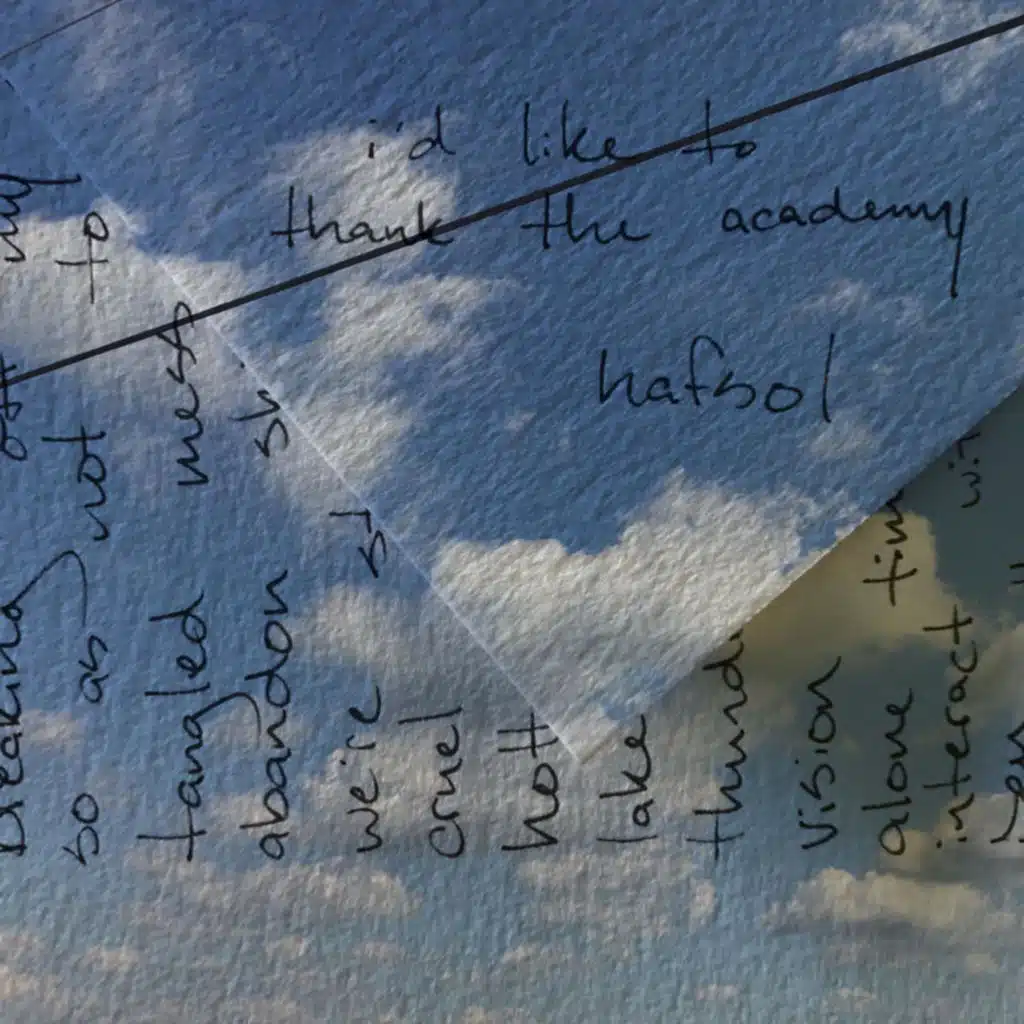 i'd like to
thank the academy
hafsol
breaking off my
so as not to
tangled mess
abandon
we're
cruel
hott
lake
vision
alone
interact